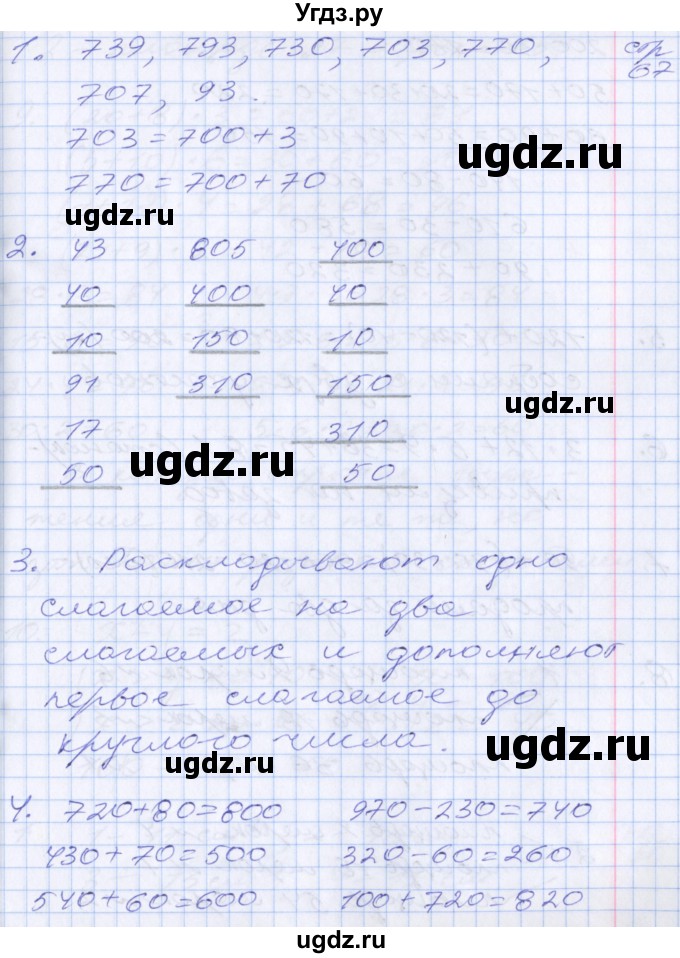 Угдз.ру
1. 739, 793, 730, 703, 770, стр 67
707, 93.
703 = 700 + 3
ugdz.ru
770 = 700 + 70
ugdz.ru
2. 43 805 400
40 400 40
10 150 10
91 310 150
ugdz.ru
17 310
ugdz.ru
50 50
3. Раскладывают одно
слагаемое на два
слагаемых и дополняют
первое слагаемое до
круглого числа.
ugdz.ru
ugdz.ru
4. 720+80=800 970-230=740
430+70=500 320-60=260
540+60=600 100+720=820
ugdz.ru